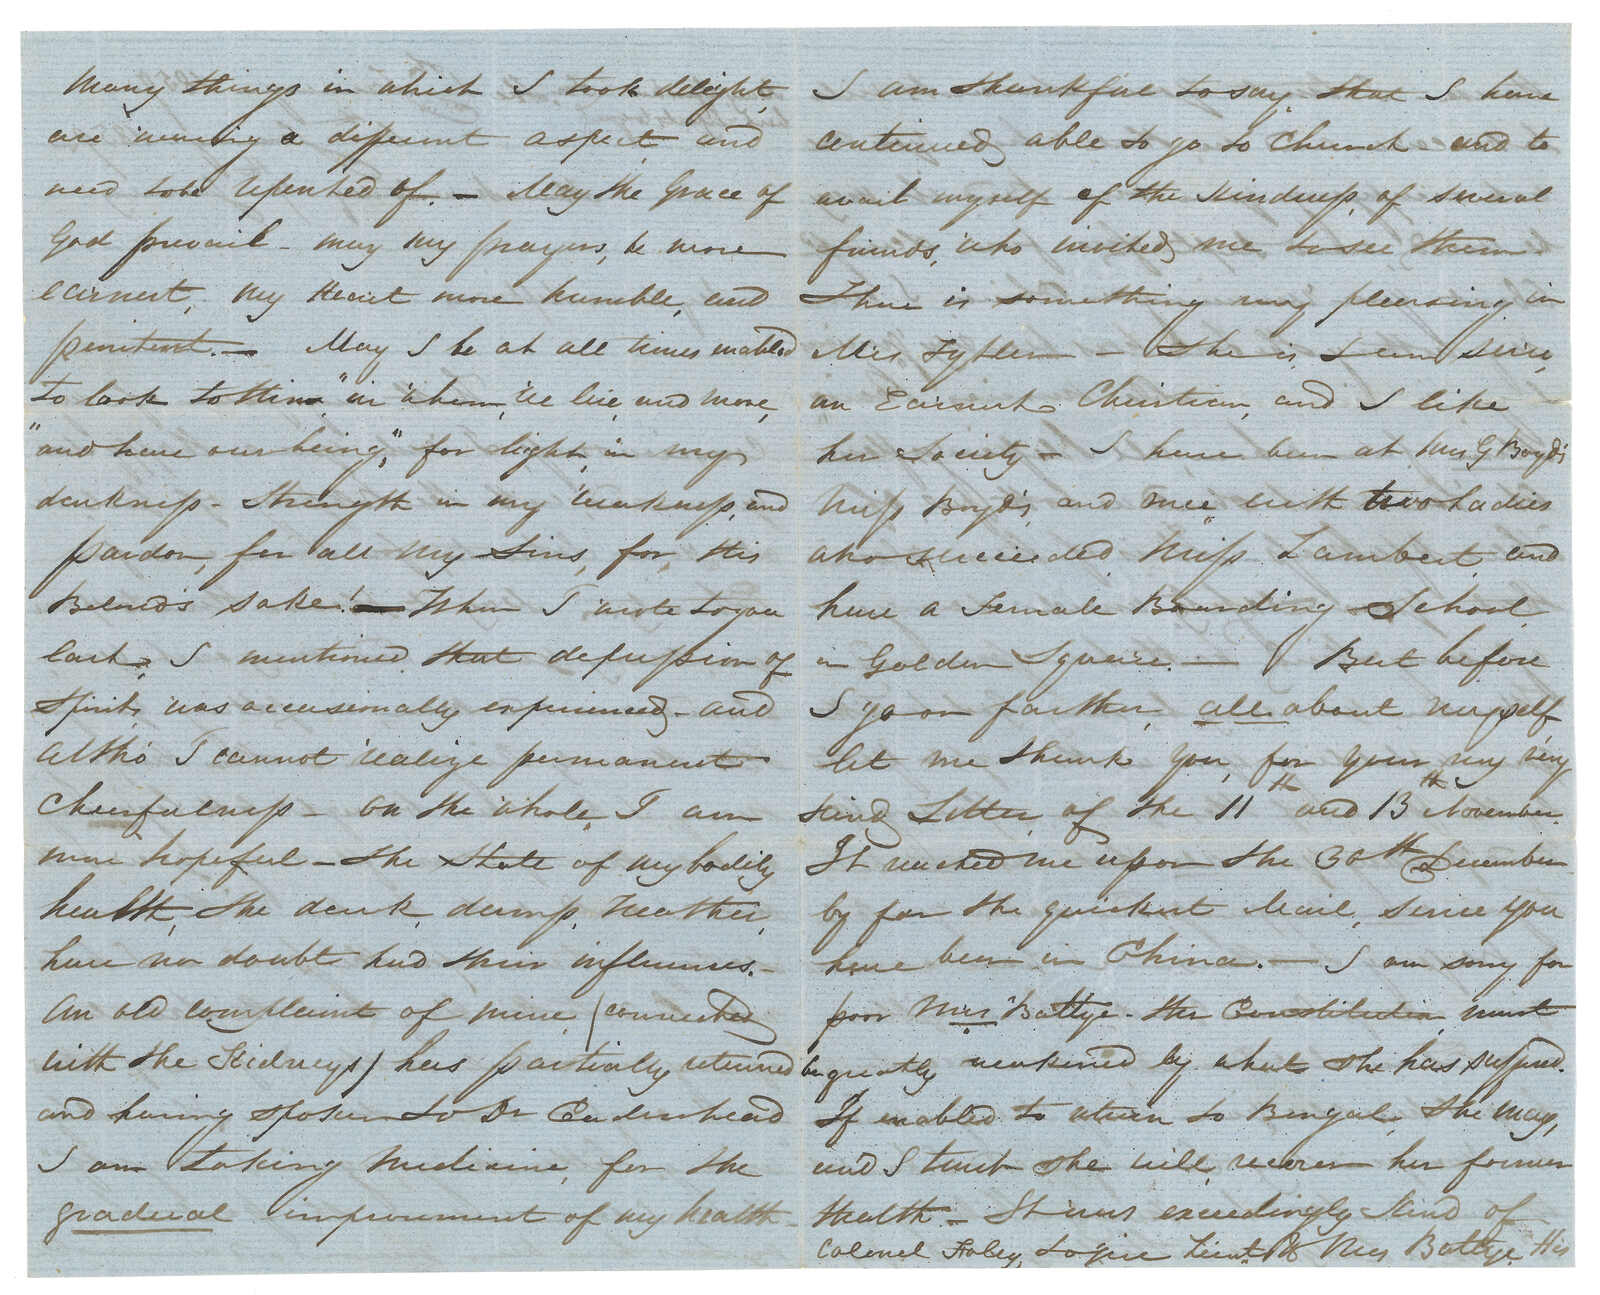 Many things in which I took delight,
are wearing a different aspect, and
need to be repented of. — May the Grace of
God prevail - may my prayers, be more
earnest, my Heart more humble, and
penitent. — May I be at all times enabled
to look to Him "in whom, we live, and move,
"and have our being," for light, in my
darkness - Strength in my weakness, and
pardon, for all my Sins, for, His
Beloved's sake! — When I wrote to you
last, I mentioned that depression of
Spirits was occasionally experienced - and
altho' I cannot realize permanent
Cheerfulness - on the whole, I am
more hopeful - the state of my bodily
health, the dark, damp, Weather,
have no doubt had their influences. -
An old complaint of mine, (connected
with the Kidneys) has partially returned
and having spoken to Dr Cadenhead
I am taking Medicine, for the
gradual improvement of my health -
I am thankful to say that I have
continued able to go to Church - and to
avail myself of the Kindness, of several
friends, who invited me to see them -
There is something very pleasing in
Mrs Tytler — She is, I am sure,
an Earnest Christian, and I like
her Society - I have been at Mrs G Boyd's
Miss Boyd's, and met with two Ladies
who succeeded Miss Lambert, and
have a Female Boarding School,
in Golden Square. — But before
I go on farther, all about myself
let me thank you, for your very very
kind Letter, of the 11th and 13th November.
It reached me upon the 30th December
by far the quickest Mail, since you
have been in China. — I am sorry for
poor Mrs Battye - Her Constitution, must
be greatly weakened by what she has suffered.
If enabled to return to Bengal, She may,
and I trust she will, recover her former
Health - It was exceedingly kind of
Colonel Foley, to give Lieut & Mrs Battye, His